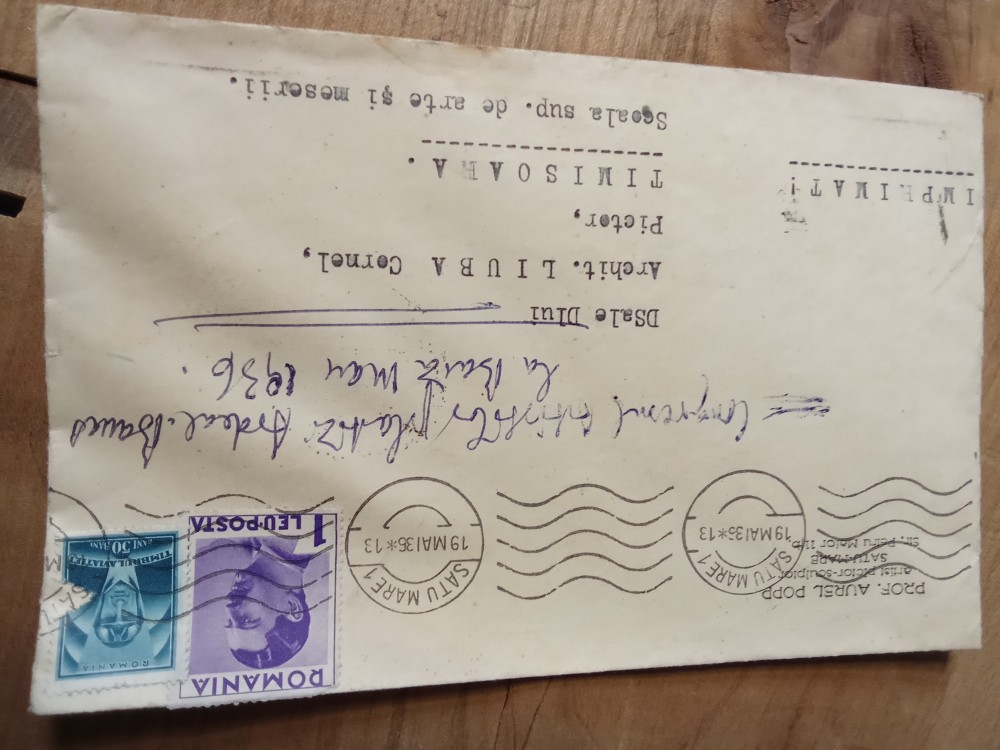 PROF. AUREL POPP
artist pictor-sculptor
SATU-MARE
Str. Petru Maior
SATU MARE 1
19 MAI 36 * 13
SATU MARE 1
19 MAI 36 * 13
ROMANIA
1
LEU·POSTA
ROMANIA
TIMBRUL AVIATIEI
BANI 50 BANI
SATU
M
Congresul Artiștilor plastici Ardeal-Banat
la Baia Mare 1936.
DSale Dlui
Archit. LIUBA Cornel,
Pictor,
TIMISOARA.
Scoala sup. de arte şi meserii.
IMPRIMAT!